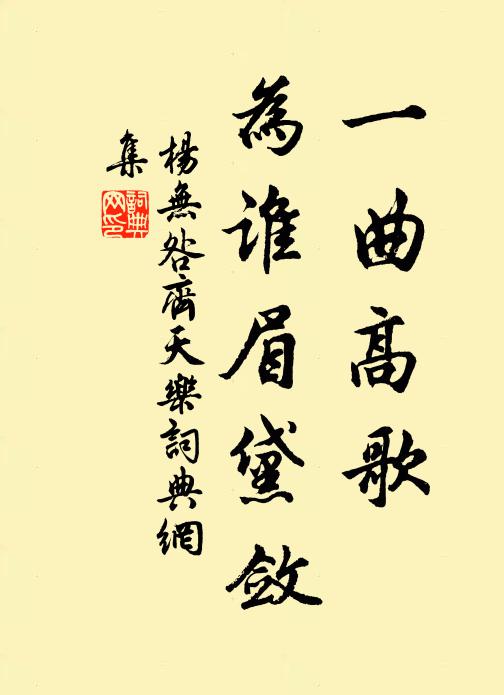 一曲高歌
為誰眉黛斂
楊無咎齊天樂詞典網
集
詞典
网印